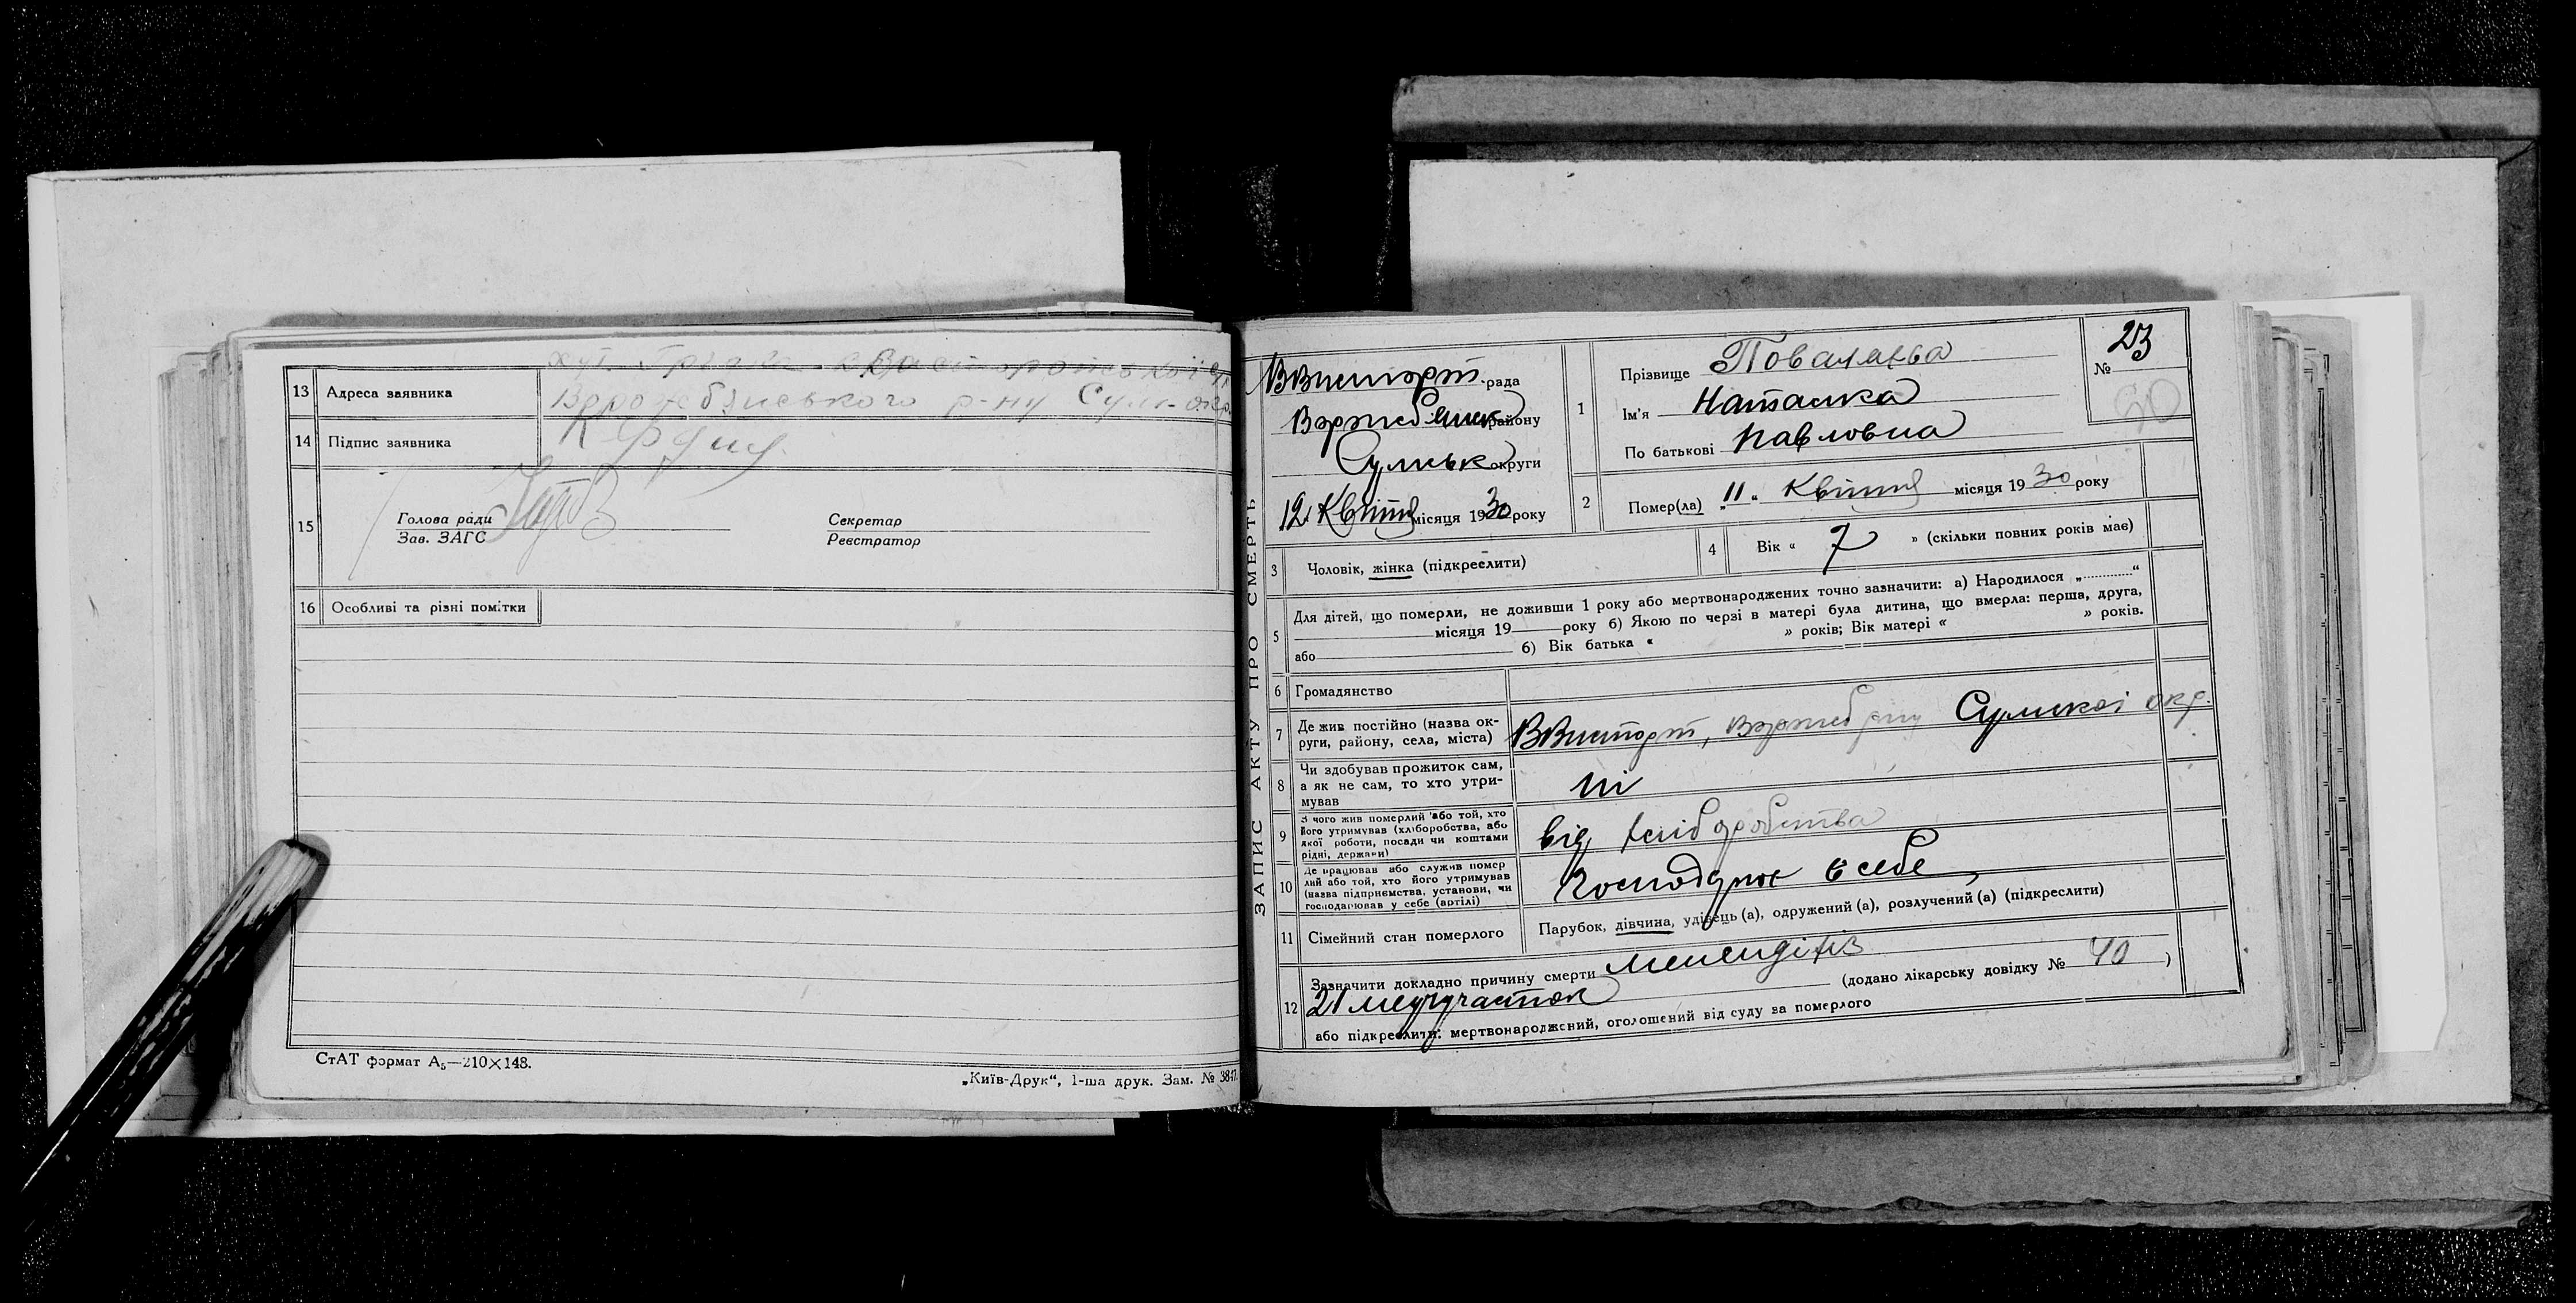 13 Адреса заявника
Ворожбянського р-ну Сум. окр.
14 Підпис заявника
15
Голова ради
Зав. ЗАГС
Секретар
Реєстратор
16 Особливі та різні помітки
СтАТ формат А₅—210×148.
„Київ-Друк“, 1-ша друк. Зам. № 3847.
ЗАПИС АКТУ ПРО СМЕРТЬ
рада
району
Сумськ округи
12 Квітня місяця 1930 року
1 Прізвище
Ім'я Наталка
По батькові Павловна
№ 23
30
2 Помер(ла) „11“ Квітня місяця 1930 року
3 Чоловік, жінка (підкреслити)
4 Вік « 7 » (скільки повних років має)
5 Для дітей, що померли, не доживши 1 року або мертвонароджених точно зазначити: а) Народилося „............“
місяця 19 року б) Якою по черзі в матері була дитина, що вмерла: перша, друга,
або б) Вік батька « » років; Вік матері « » років.
6 Громадянство
7 Де жив постійно (назва ок-
руги, району, села, міста) Сумскої окр.
8 Чи здобував прожиток сам,
а як не сам, то хто утри-
мував
ні
9 З чого жив померлий або той, хто
його утримував (хліборобства, або
якої роботи, посади чи коштами
рідні, держави)
від хліборобства
10 Де працював або служив помер
лий або той, хто його утримував
(назва підприємства, установи, чи
господарював у себе (артілі)
в себе
11 Сімейний стан померлого Парубок, дівчина, удівець (а), одружений (а), розлучений (а) (підкреслити)
12 Зазначити докладно причину смерти
21 медучасток (додано лікарську довідку № 40 )
або підкреслити: мертвонароджений, оголошений від суду за померлого